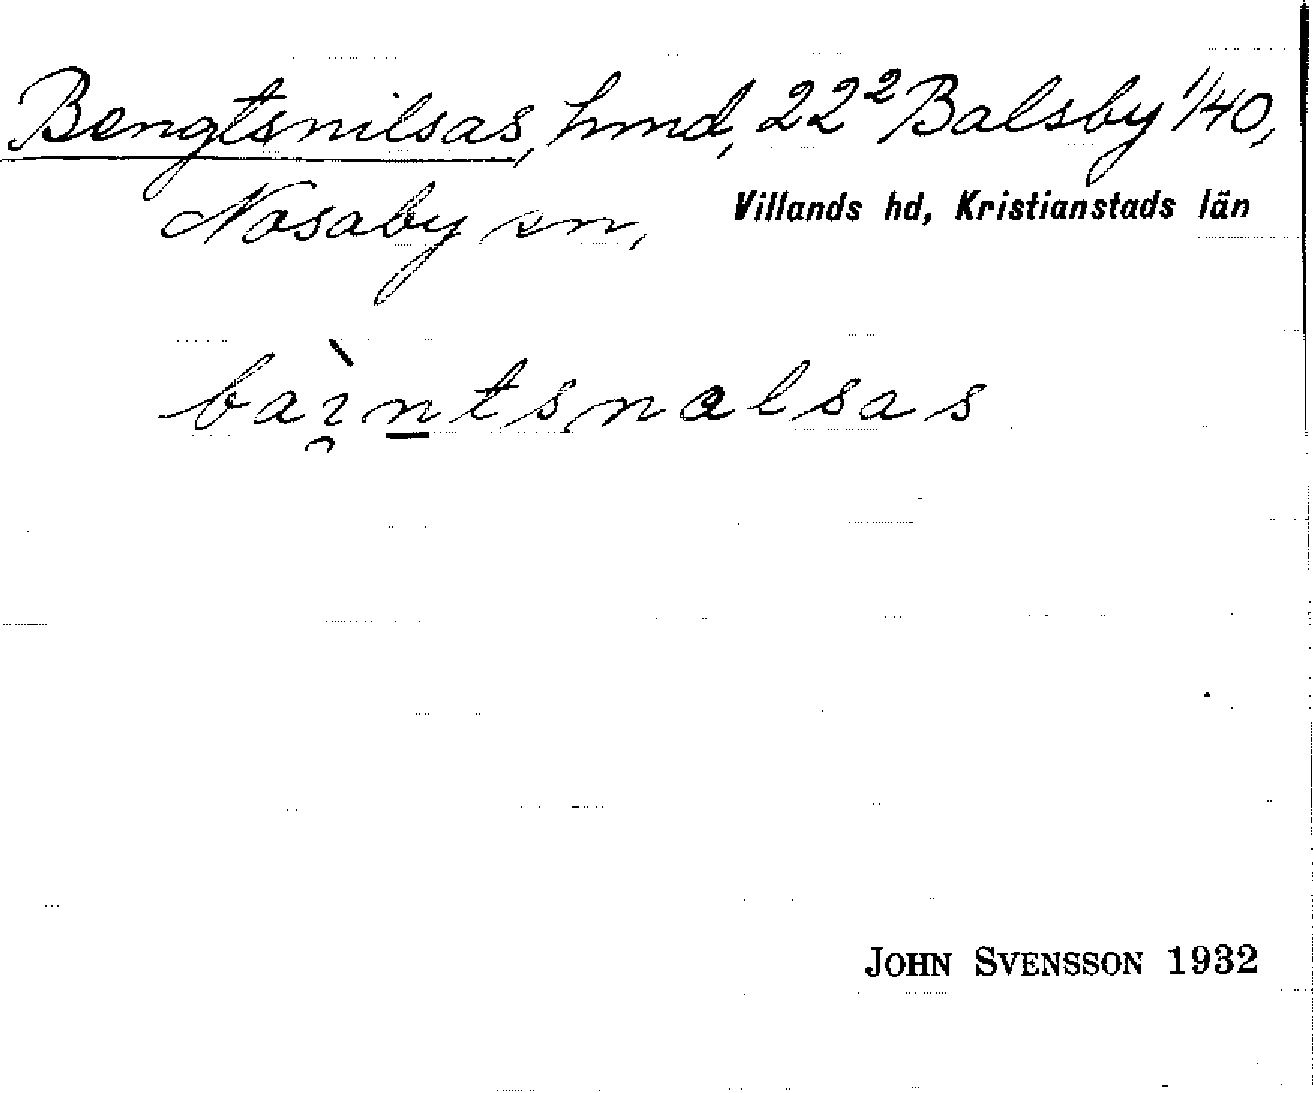 Bengtsnilsas, hmd, 22² Balsby 1/40,
Nosaby sn, Villands hd, Kristianstads län
bàɪ̯n̲tsnəlsas
JOHN SVENSSON 1932